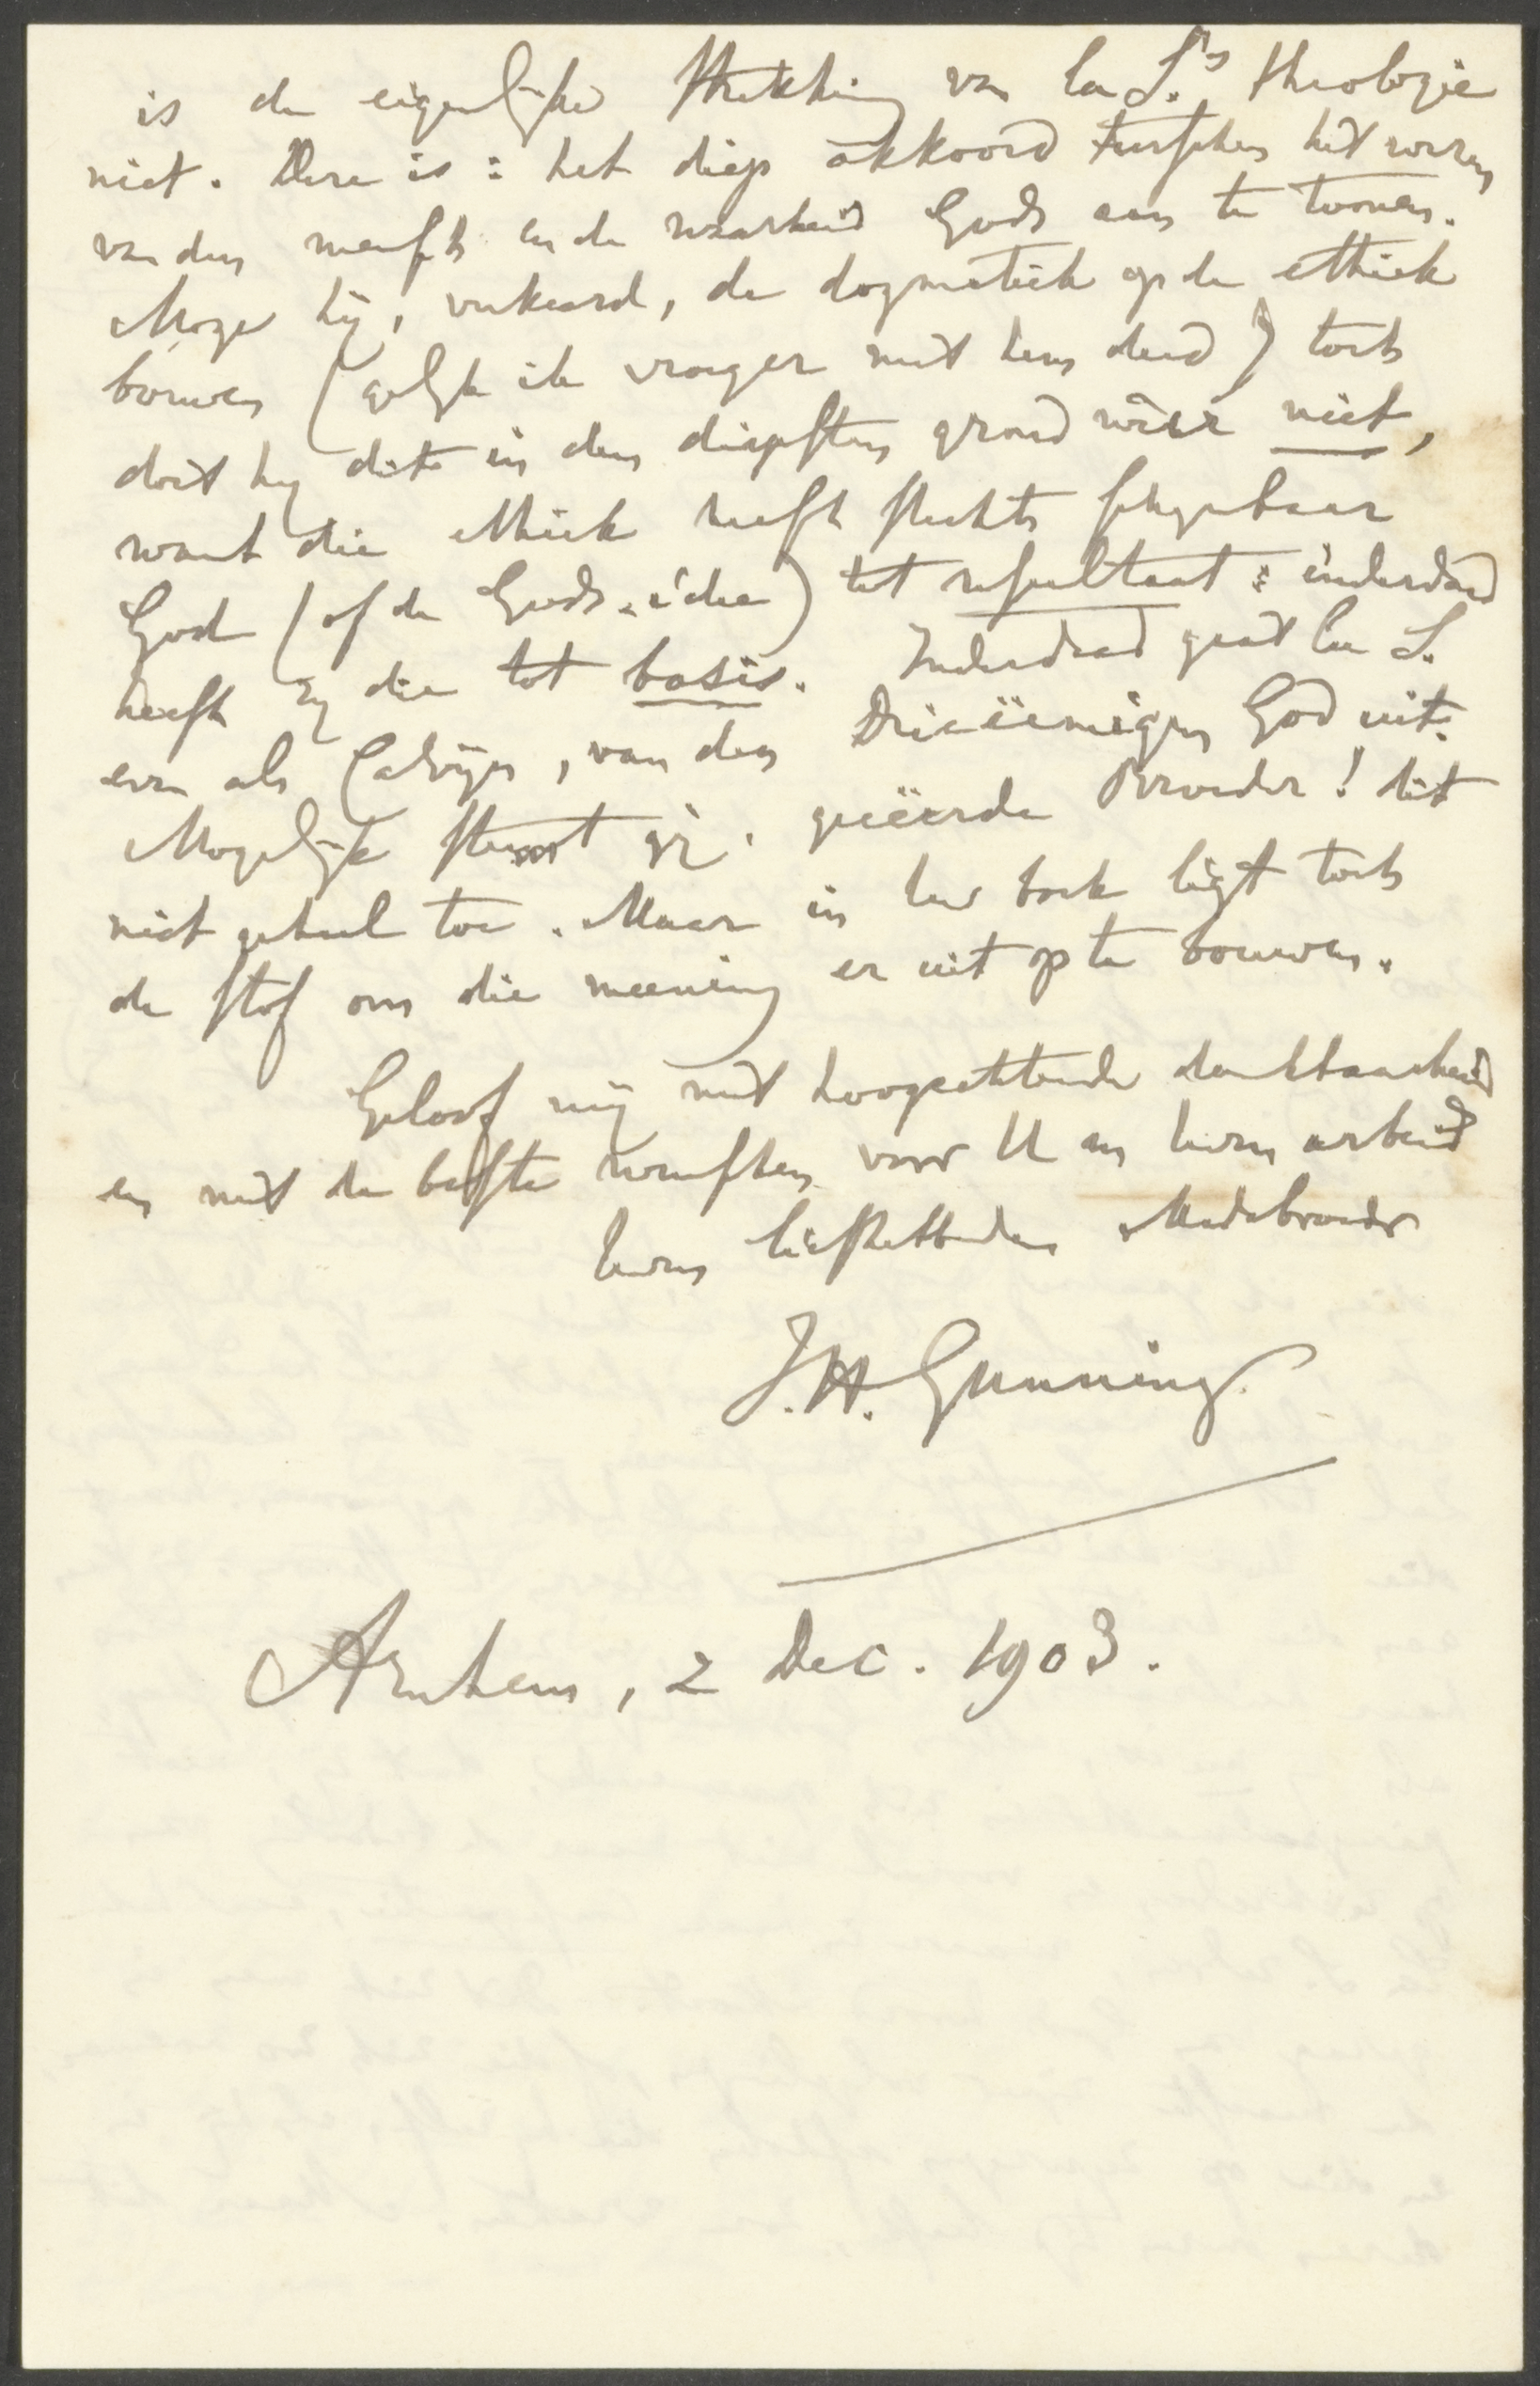 is de eigenlijke strekking van la S.'s theologie
niet. Deze is: het diep akkoord tusschen het wezen
van den mensch en de waarheid Gods aan te toonen.
Moge hij, verkeerd, de dogmatiek op de ethiek
bouwen (gelijk ik vroeger met hem deed) toch
doet hij dit in den diepsten grond weer niet,
want die ethiek heeft slechts schijnbaar
God (of de Gods-idee) tot resultaat: inderdaad
heeft zij die tot basis. Inderdaad gaat la S.
even als Calvijn, van den Drieëenigen God uit.
Mogelijk stemt gij, geëerde Broeder! dit
niet geheel toe. Maar in Uw boek ligt toch
de stof om die meening er uit op te bouwen.
Geloof mij met hoogachtende dankbaarheid
en met de beste wenschen voor U en Uwen arbeid
Uwen liefhebbenden Medebroeder
J.H. Gunning.
Arnhem, 2 Dec. 1903.